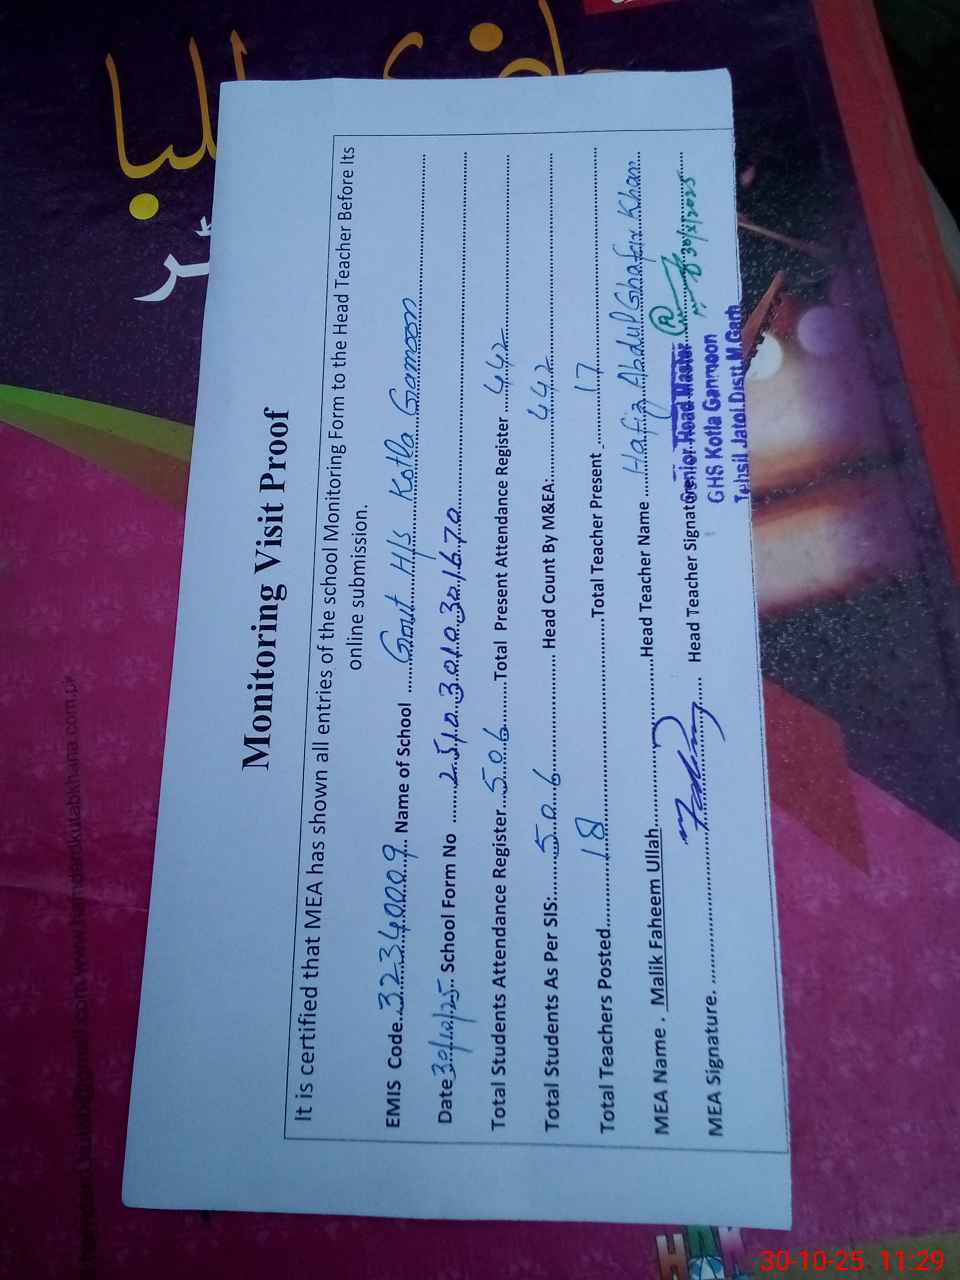 Monitoring Visit Proof
It is certified that MEA has shown all entries of the school Monitoring Form to the Head Teacher Before Its
online submission.
EMIS Code...32340009... Name of School ......Govt H/s Kotla Gamoon
Date 30/10/25.. School Form No ......25103010301670......
Total Students Attendance Register...506......Total Present Attendance Register....442......
Total Students As Per SIS:......506...... Head Count By M&EA:......442......
Total Teachers Posted......18......Total Teacher Present ......17......
MEA Name . Malik Faheem Ullah......Head Teacher Name ......Hafiz Abdul Ghafix Khan...
MEA Signature. ...... Head Teacher Signature
30/X/2025
Senior Head Master
GHS Kotla Ganmoon
Tehsil Jatoi Distt M.Garh
30-10-25 11:29